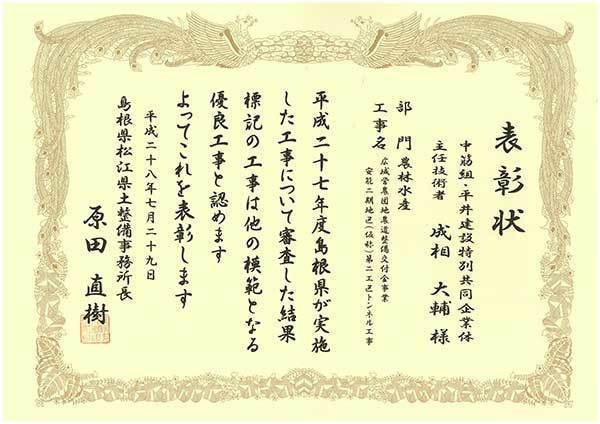 表彰状
中筋組・平井建設特別共同企業体
主任技術者 成相 大輔 様
部門 農林水産
工事名 広域営農団地農道整備交付金事業
安能二期地区(仮称)第二工区トンネル工事
平成二十七年度島根県が実施
した工事について審査した結果
標記の工事は他の模範となる
優良工事と認めます
よってこれを表彰します
平成二十八年七月二十九日
島根県松江県土整備事務所長
原田 直樹